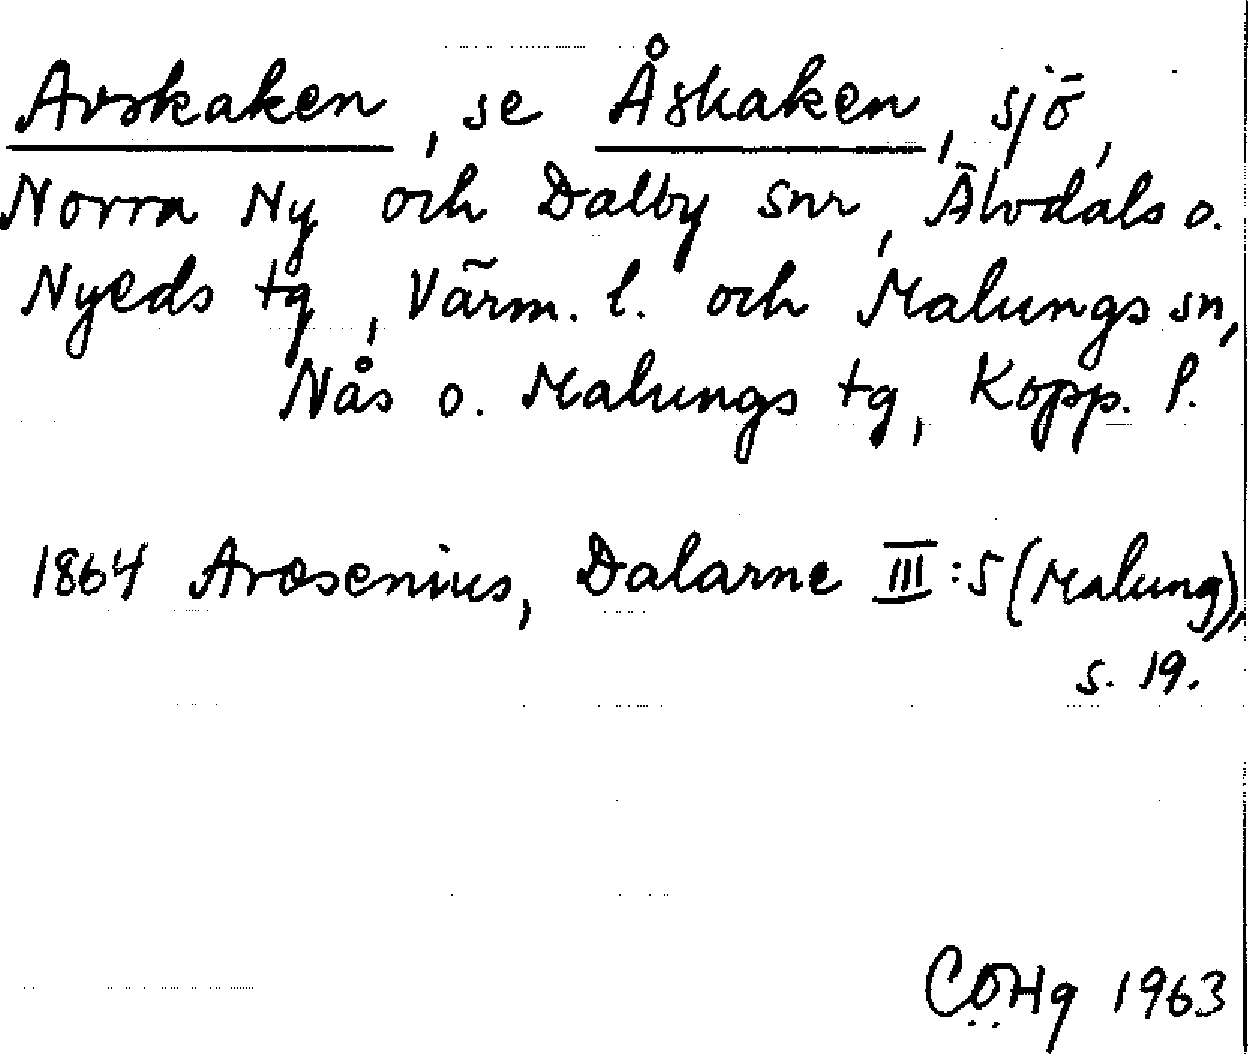 Avskaken, se Åskaken, sjö,
Norra Ny och Dalby snr, Älvdals o.
Nyeds tg, Värm. l. och Malungs sn,
Nås o. Malungs tg, Kopp. l.
1864 Arosenius, Dalarne III:5 (Malung),
s. 19.
CÖHg 1963